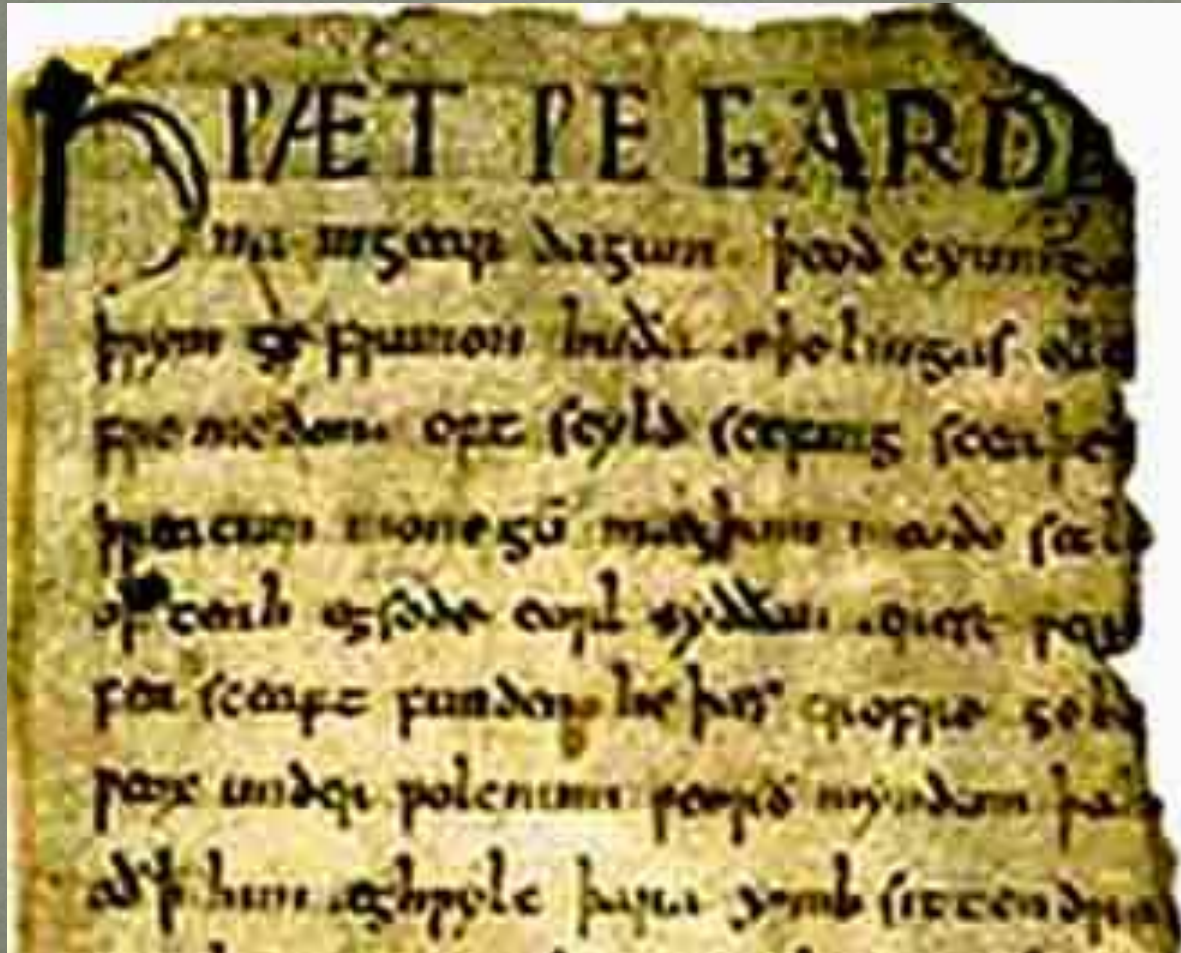 HǷÆT ǷE GARDE
na ingear dagum. þeod cyninga
þrym ge frunon huða æþelingas elle
fremedon. oft scyld scefing sceaþe
þreatum monegū mægþum meodo setla
of teah egsode eorl syððan ærest ƿear
fea sceaft funden he þæs frofre geba
ƿeox under ƿolcnum ƿeorð myndum þah
oð þ him æghƿylc þara ymb sittendra